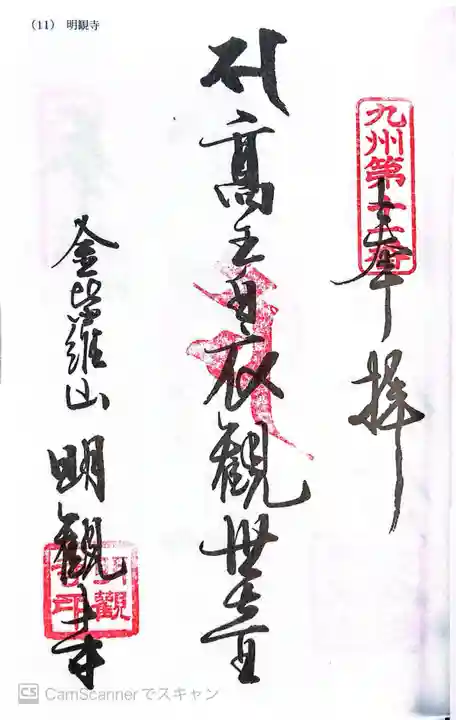 (11) 明観寺
九州第十一番
奉拝
高王白衣観世音
金比羅山 明観寺
CS CamScannerでスキャン